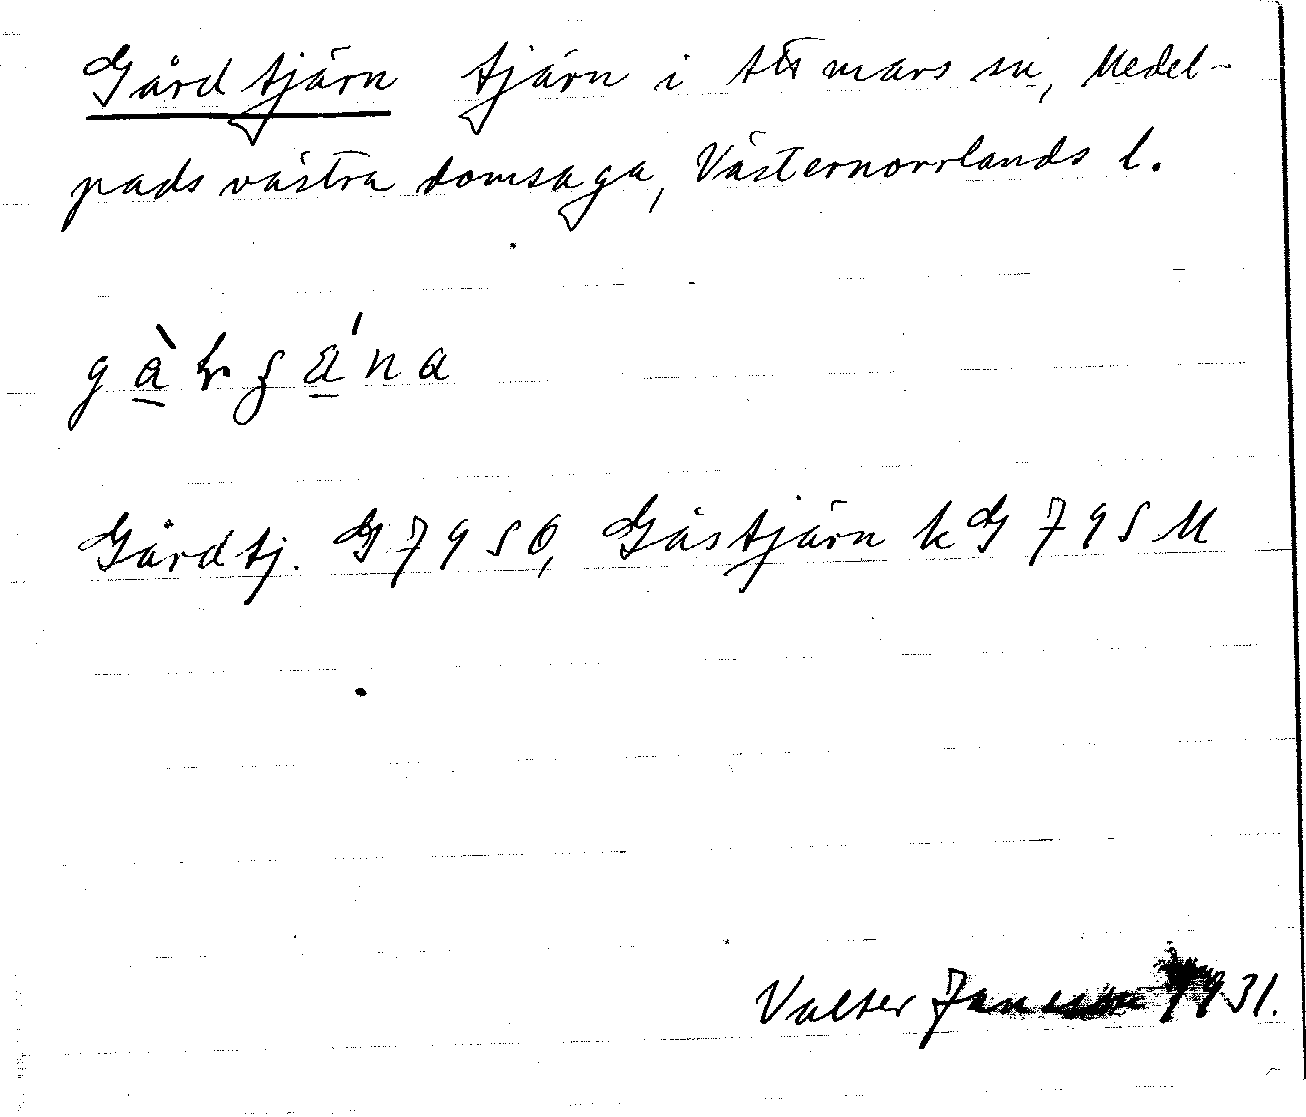 Gårdtjärn tjärn i Attmars sn, Medel-
pads västra domsaga, Västernorrlands l.
Gårdtj. G 79 SO, Gåstjärn kG 79 S M
Valter Jansson 1931.